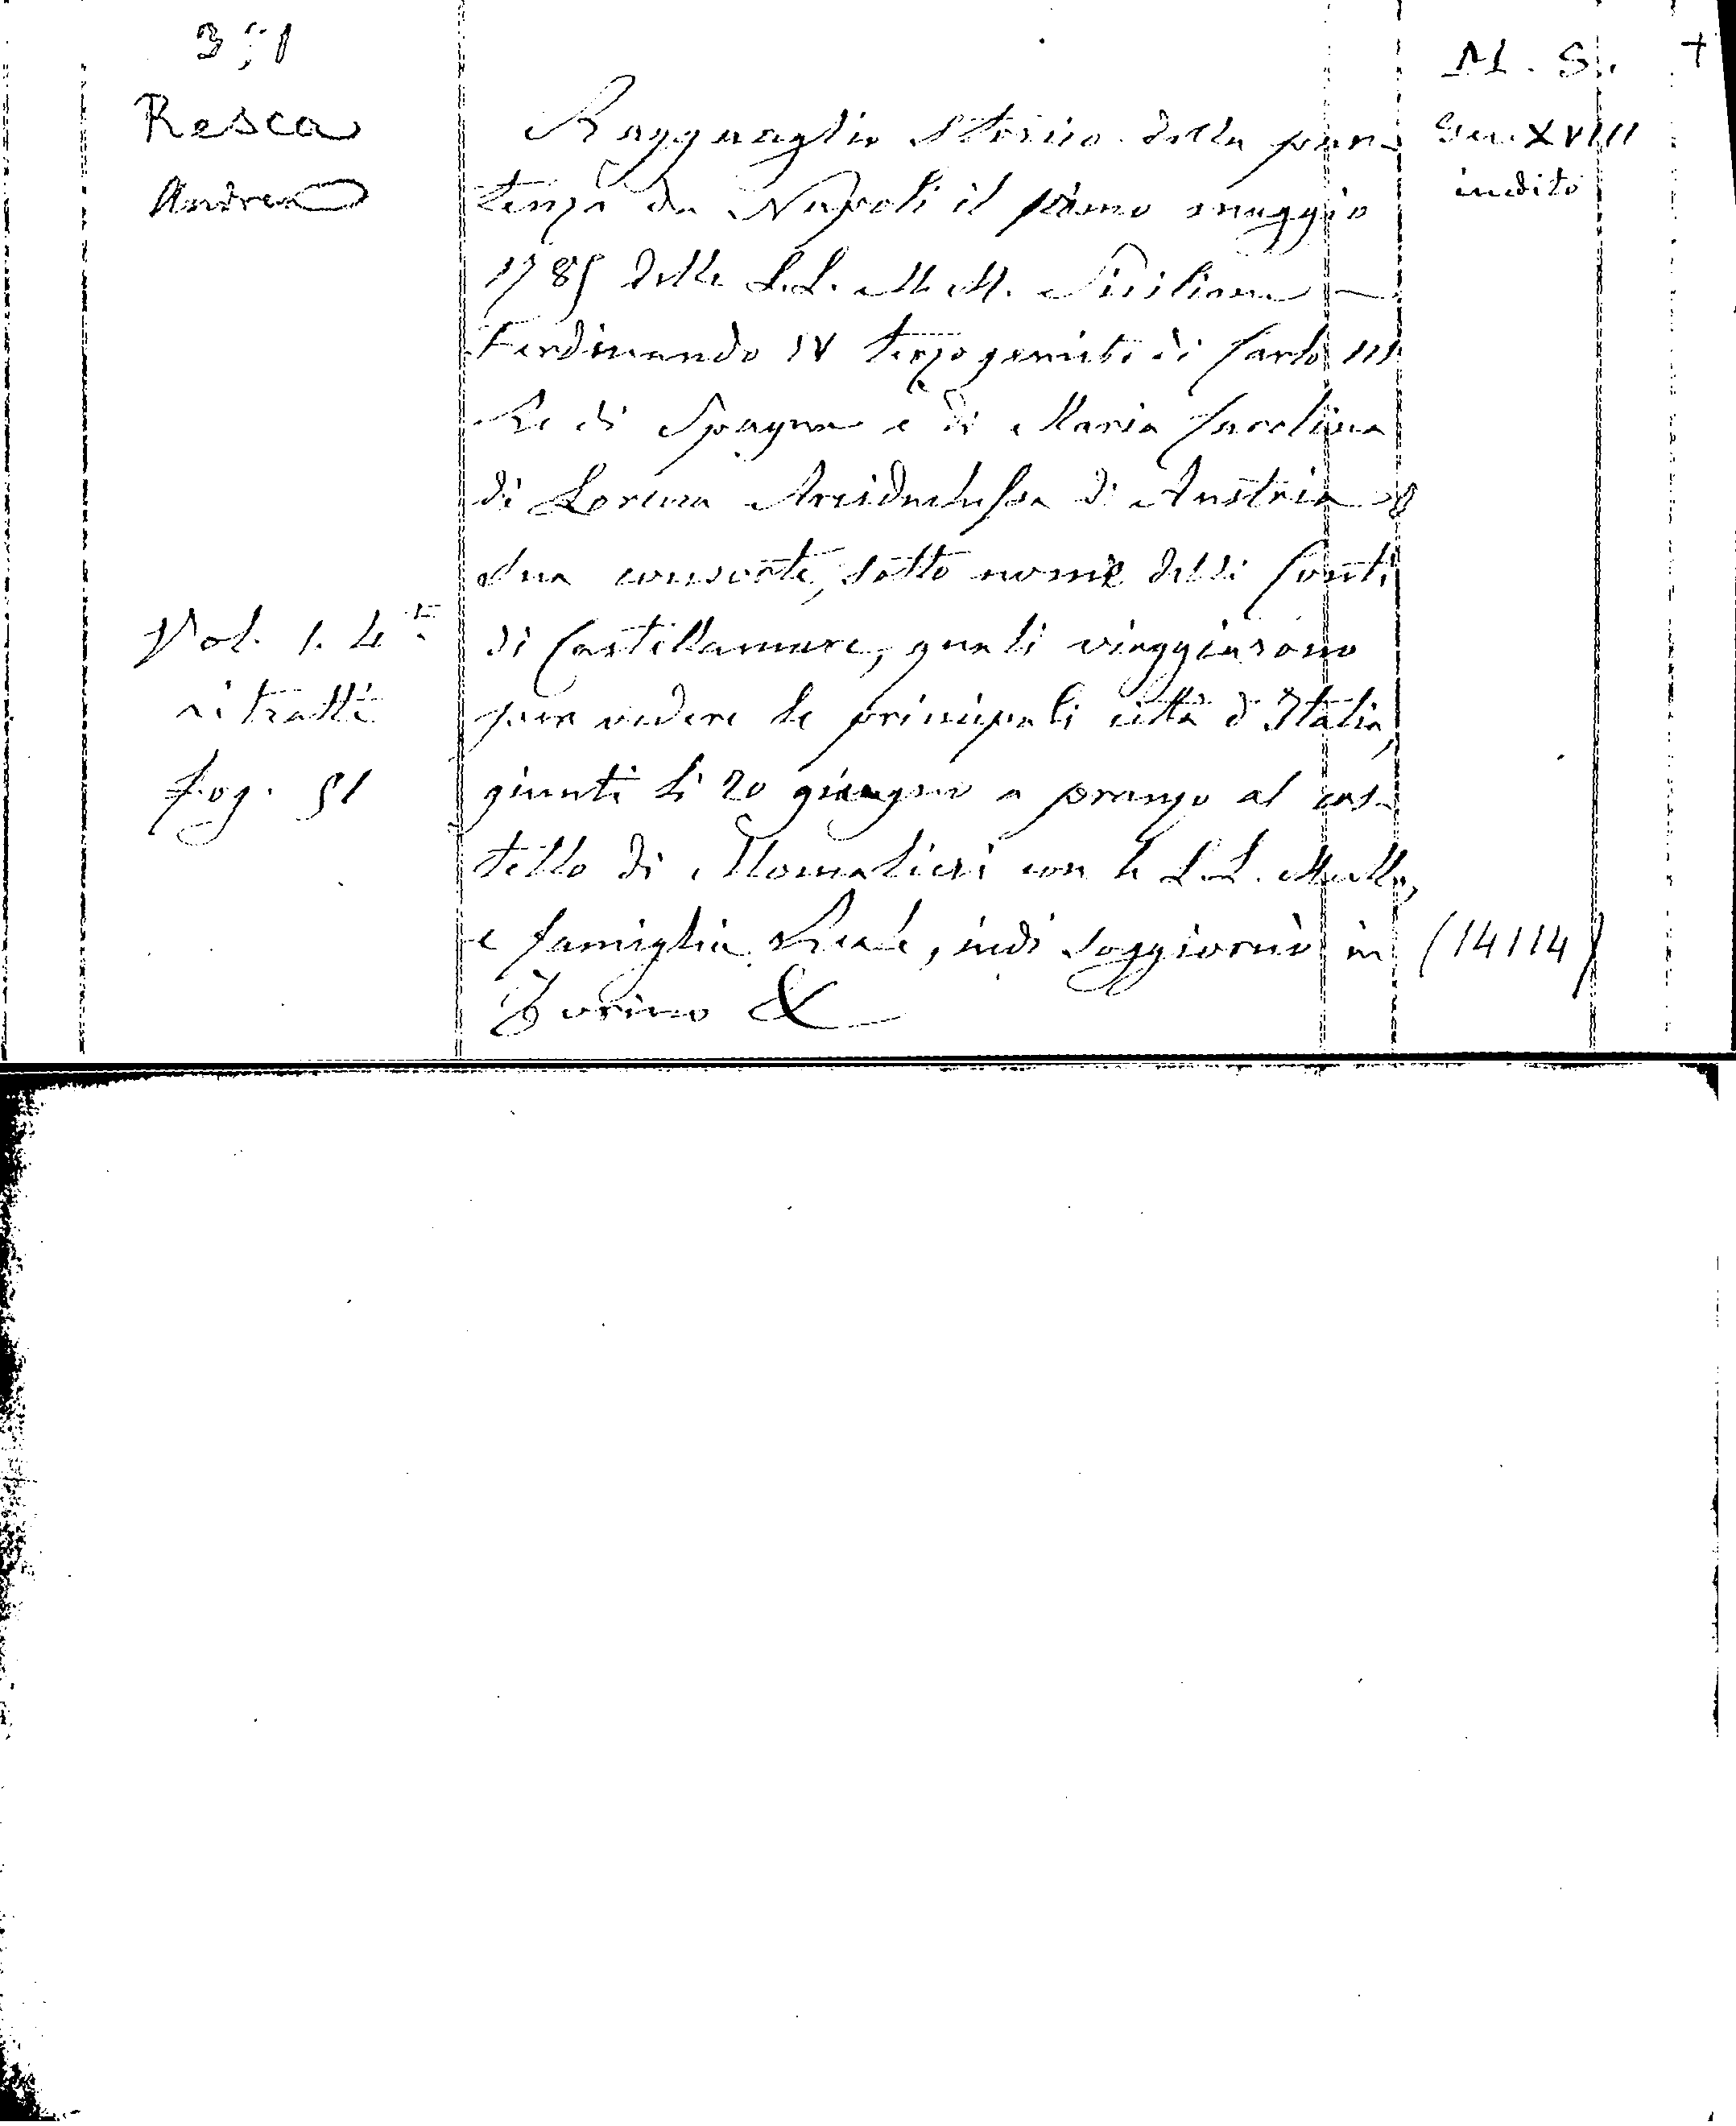 Resca
Andrea
Vol. 1. 4.to
ritratti
fog. 51
Ragguaglio Storico della par-
tenza da Napoli il primo maggio
1785 delle L.L. M.M. Siciliane
Ferdinando IV terzogenito di Carlo III
Re di Spagna e di Maria Carolina
di Lorena Arciduchessa di Austria
sua consorte, sotto nome delli Conti
di Castellamare, quali viaggiarono
per vedere le principali città d'Italia,
giunti li 20 giugno a pranzo al cas-
tello di Moncalieri con le L.L. M.M.,
e famiglia Reale, indi soggiorno in
Torino &
M. S. +
Sec. XVIII
inedito
(14114)